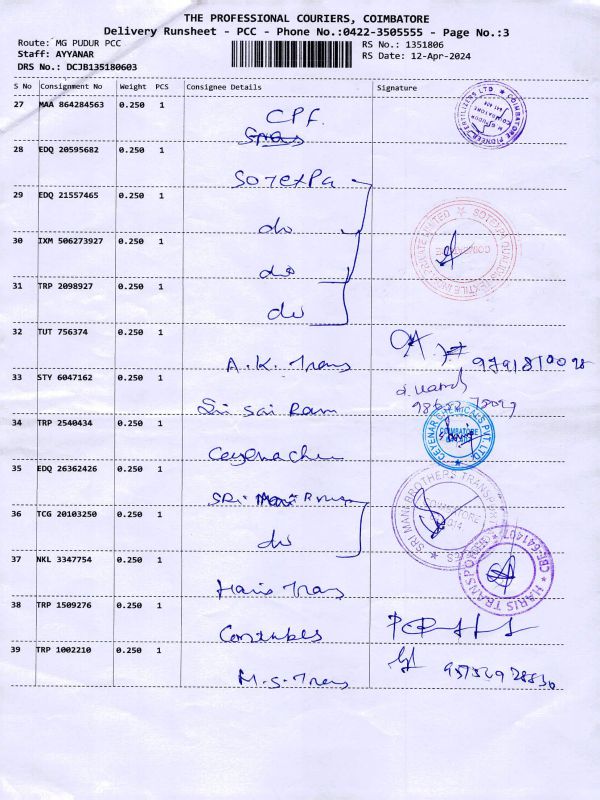 THE PROFESSIONAL COURIERS, COIMBATORE
Delivery Runsheet - PCC - Phone No.:0422-3505555 - Page No.:3
Route: MG PUDUR PCC
RS No.: 1351806
Staff: AYYANAR
RS Date: 12-Apr-2024
DRS No.: DCJB135180603
S No Consignment No Weight PCS Consignee Details Signature
27 MAA 864284563 0.250 1 CPF.
28 EDQ 20595682 0.250 1 Sotexpa
29 EDQ 21557465 0.250 1 do
30 IXM 506273927 0.250 1 do
31 TRP 2098927 0.250 1 do
32 TUT 756374 0.250 1 A.K. Trans
33 STY 6047162 0.250 1 Sri Sai Ram
34 TRP 2540434 0.250 1 Ceyenachem
CEYENAR CHEMICALS PVT LTD
COIMBATORE
35 EDQ 26362426 0.250 1 SRi
SRI MANI BROTHERS TRANSPORT
36 TCG 20103250 0.250 1 do
37 NKL 3347754 0.250 1 Haris Trans
HARIS TRANSPORT CBE-641407
38 TRP 1509276 0.250 1
39 TRP 1002210 0.250 1 M.S. Trans